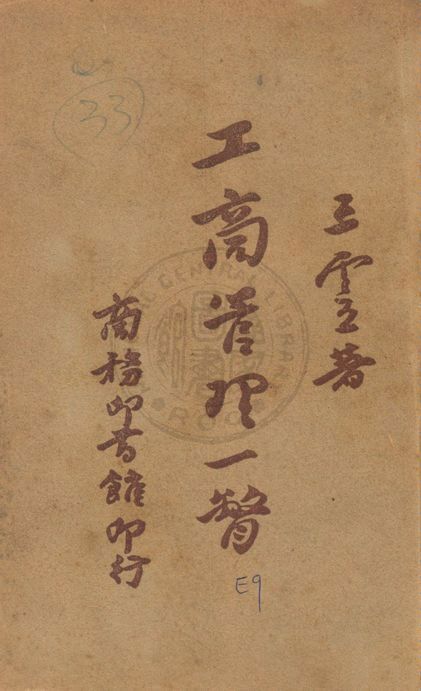 王雲五著
工商管理一瞥
商務印書館印行
33
E9
NATIONAL CENTRAL LIBRARY
ROC